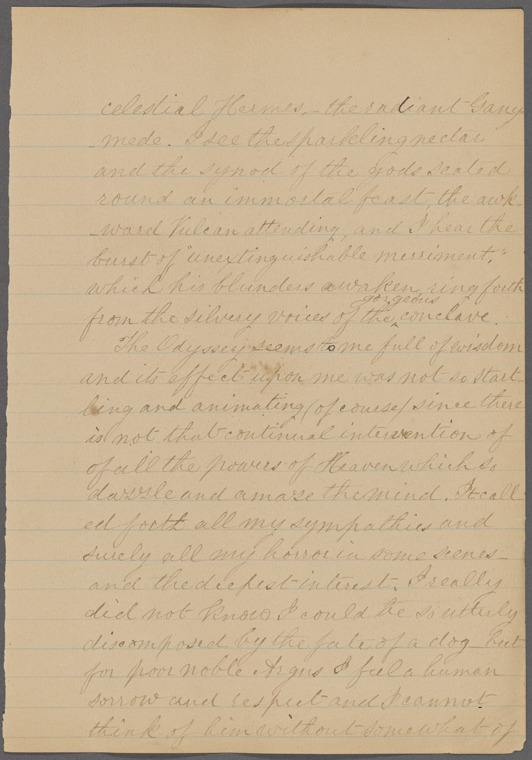 celestial Hermes, – the radiant Gany
-mede. I see the sparkling nectar
and the synod of the Gods seated
round an immortal feast, the awk-
-ward Vulcan attending, and I hear the
burst of "unextinguishable merriment,"
which his blunders awaken, ring forth
gorgeous
from the silvery voices of the conclave.
The Odyssey seems to me full of wisdom
and its effect upon me was not so start
ling and animating (of course) since there
is not that continual intervention of
of all the powers of Heaven which so
dazzle and amaze the mind. It call
ed forth all my sympathies and
surely all my horror in some scenes –
and the deepest interest. I really
did not know I could be so utterly
discomposed by the fate of a dog – but
for poor noble Argus I feel a human
sorrow and respect and I cannot
think of him without somewhat of